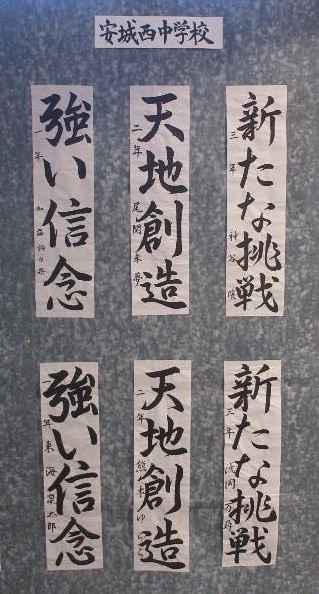 安城西中学校
新たな挑戦
三年 神谷
天地創造
二年 尾関 来夢
強い信念
一年 加藤
新たな挑戦
三年 浅岡 万尋
天地創造
二年 熊木 ゆ
強い信念
一年 東海 太郎